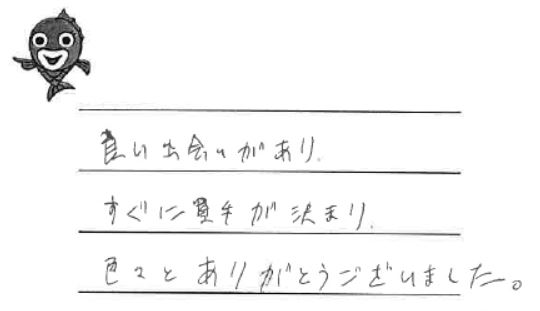 良い出会いがあり、
すぐに買手が決まり、
色々とありがとうございました。